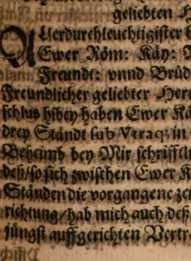 geliebten H
Allerdurchleuchtigister
Ewer Röm: Käy: M
Freundt: vnnd Brůd
Freundlicher geliebter Herr
schlus hiebey haben Ewer Kä
drey Ständt sub Vtraq; in
Behemb bey Mir schrifftl
deß/so sich zwischen Ewer K
Ständen die vorgangene ze
richtung/hab mich auch deß
jüngst auffgerichten Vertr